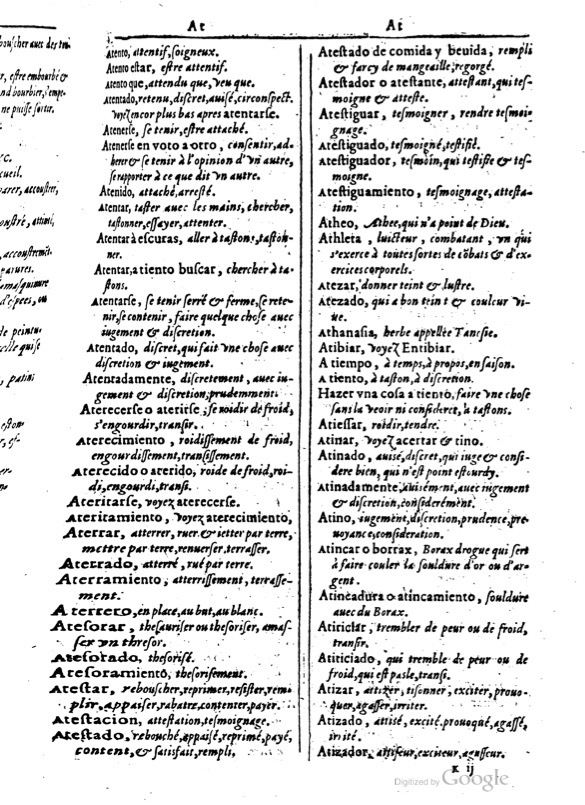 At
At
Atento, attentif, soigneux.
Atento estar, estre attentif.
Atento que, attendu que, veu que.
Atentado, retenu, discret, auisé, circonspect.
voyez encor plus bas apres atentarse.
Atenerse, se tenir, estre attaché.
Atenerse en voto a otro, consentir, ad-
herer & se tenir à l'opinion d'vn autre,
se rapporter à ce que dit vn autre.
Atenido, attaché, arresté.
Atentar, taster auec les mains, chercher,
tastonner, essayer, attenter.
Atentar à escuras, aller à tastons, taston-
ner.
Atentar, a tiento buscar, chercher à ta-
stons.
Atentarse, se tenir serré & ferme, se rete-
nir, se contenir, faire quelque chose auec
iugement & discretion.
Atentado, discret, qui fait vne chose auec
discretion & iugement.
Atentadamente, discretement, auec iu-
gement & discretion, prudemment.
Aterecerse o aterirse, se roidir de froid,
s'engourdir, transir.
Aterecimiento, roidissement de froid,
engourdissement, transissement.
Aterecido o aterido, roide de froid, roi-
di, engourdi, transi.
Ateritarse, voyez aterecerse.
Ateritamiento, voyez aterecimiento,
Aterrar, atterrer, ruer & ietter par terre,
mettre par terre, renuerser, terrasser.
Aterrado, atterré, rué par terre.
Aterramiento, atterrissement, terrasse-
ment.
A terrero, en place, au but, au blanc.
Atesorar, thesauriser ou thesoriser, amas-
ser vn thresor.
Atesorado, thesorisé.
Atesoramiento, thesorisement.
Atestar, reboucher, reprimer, resister, rem-
plir, appaiser, rabatre, contenter, payer.
Atestacion, attestation, tesmoignage.
Atestado, rebouché, appaisé, reprimé, payé,
content, & satisfait, rempli,
Atestado de comida y beuida, rempli
& farcy de mangeaille, regorgé.
Atestador o atestante, attestant, qui tes-
moigne & atteste.
Atestiguar, tesmoigner, rendre tesmoi-
gnage.
Atestiguado, tesmoigné, testifié.
Atestiguador, tesmoin, qui testifie & tes-
moigne.
Atestiguamiento, tesmoignage, attesta-
tion.
Atheo, Athee, qui n'a point de Dieu.
Athleta, luicteur, combatant, vn qui
s'exerce à toutes sortes de cõbats & d'ex-
ercices corporels.
Atezar, donner teint & lustre.
Atezado, qui a bon teint & couleur vi-
ue.
Athanasia, herbe appellée Tanesie.
Atibiar, voyez Entibiar.
A tiempo, à temps, à propos, en saison.
A tiento, à taston, à discretion.
Hazer vna cosa a tiento, faire vne chose
sans la veoir ni considerer, à tastons.
Atiessar, roidir, tendre.
Atinar, voyez acertar & tino.
Atinado, auisé, discret, qui iuge & consi-
dere bien, qui n'est point estourdy.
Atinadamente, auisément, auec iugement
& discretion, considerément.
Atino, iugement, discretion, prudence, pre-
uoyance, consideration.
Atincar o borrax, Borax drogue qui sert
à faire couler la souldure d'or ou d'ar-
gent.
Atincadura o atincamiento, souldure
auec du Borax.
Atiriciar, trembler de peur ou de froid,
transir.
Atiriciado, qui tremble de peur ou de
froid, qui est pasle, transi.
Atizar, attizer, tisonner, exciter, prouo-
quer, agasser, irriter.
Atizado, attisé, excité, prouoqué, agassé,
irrité.
Atizador, attiseur, exciteur, agasseur.
K ij
Digitized by Google